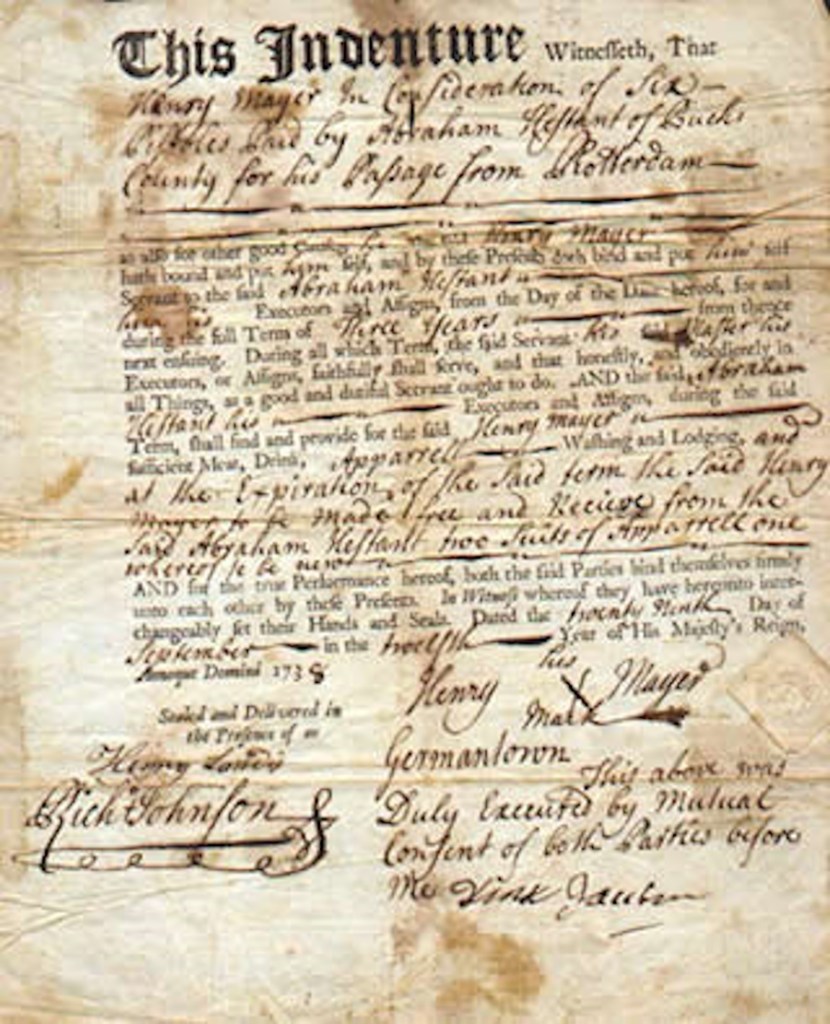 This Indenture Witnesseth, That
Henry Mayer In Consideration of Six
Pistoles Paid by Abraham Hestant of Bucks
County for his Passage from Rotterdam
as also for other good Causes he the said Henry Mayer
hath bound and put him self, and by these Presents doth bind and put him self
Servant to the said Abraham Hestant
his Executors and Assigns, from the Day of the Date hereof, for and
during the full Term of Three Years from thence
next ensuing. During all which Term, the said Servant his said Master his
Executors, or Assigns, faithfully shall serve, and that honestly, and obediently in
all Things, as a good and dutiful Servant ought to do. AND the said Abraham
Hestant his Executors and Assigns, during the said
Term, shall find and provide for the said Henry mayer
sufficient Meat, Drink, Apparrell Washing and Lodging, and
at the Expiration of the Said term the Said Henry
Mayer to be Made free and Recieve from the
Said Abraham Hestant two Suits of Apparrell one
whereof to be new
AND for the true Performance hereof, both the said Parties bind themselves firmly
unto each other by these Presents. In Witness whereof they have hereunto inter-
changeably set their Hands and Seals. Dated the twenty Ninth Day of
September in the twelfth Year of His Majesty's Reign,
Annoque Domini 1738
his
Henry X Mayer
Mark
Sealed and Delivered in
the Presence of us
Henry
Rich Johnson
Germantown
This above was
Duly Executed by Mutual
Consent of both Parties before
Me Dirk Jansen